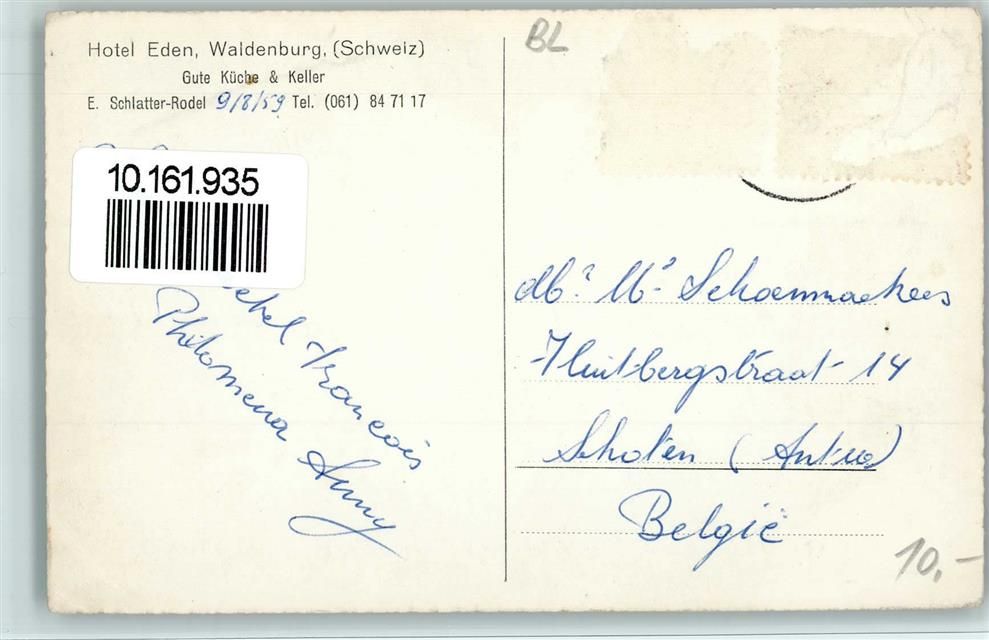 Hotel Eden, Waldenburg, (Schweiz)
Gute Küche & Keller
E. Schlatter-Rodel 9/8/59 Tel. (061) 84 71 17
10.161.935
François
Philomena Anny
BL
Schoenmaekers
14
Schoten (Antw)
België
10,-